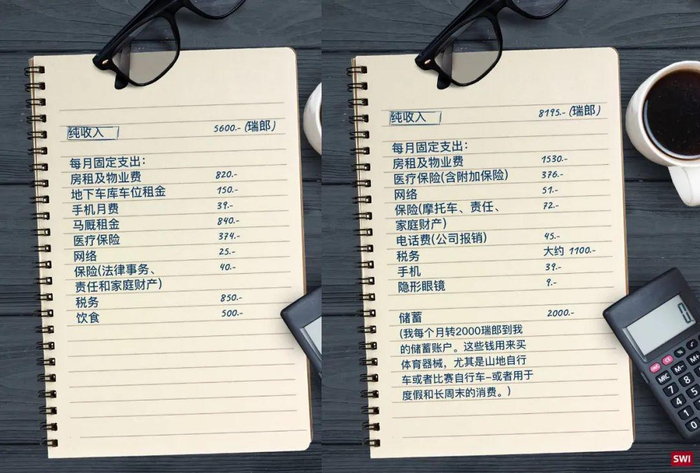 纯收入 5600.- (瑞郎)
每月固定支出:
房租及物业费 820.-
地下车库车位租金 150.-
手机月费 39.-
马厩租金 840.-
医疗保险 374.-
网络 25.-
保险(法律事务、 40.-
责任和家庭财产)
税务 850.-
饮食 500.-
纯收入 8195.- (瑞郎)
每月固定支出:
房租及物业费 1530.-
医疗保险(含附加保险) 376.-
网络 51.-
保险(摩托车、责任、 72.-
家庭财产)
电话费(公司报销) 45.-
税务 大约 1100.-
手机 39.-
隐形眼镜 9.-
储蓄 2000.-
(我每个月转2000瑞郎到我
的储蓄账户。这些钱用来买
体育器械，尤其是山地自行
车或者比赛自行车–或者用于
度假和长周末的消费。)
0
MRC M- M+
7 8 9
4 5 6
1 2
0
SWI